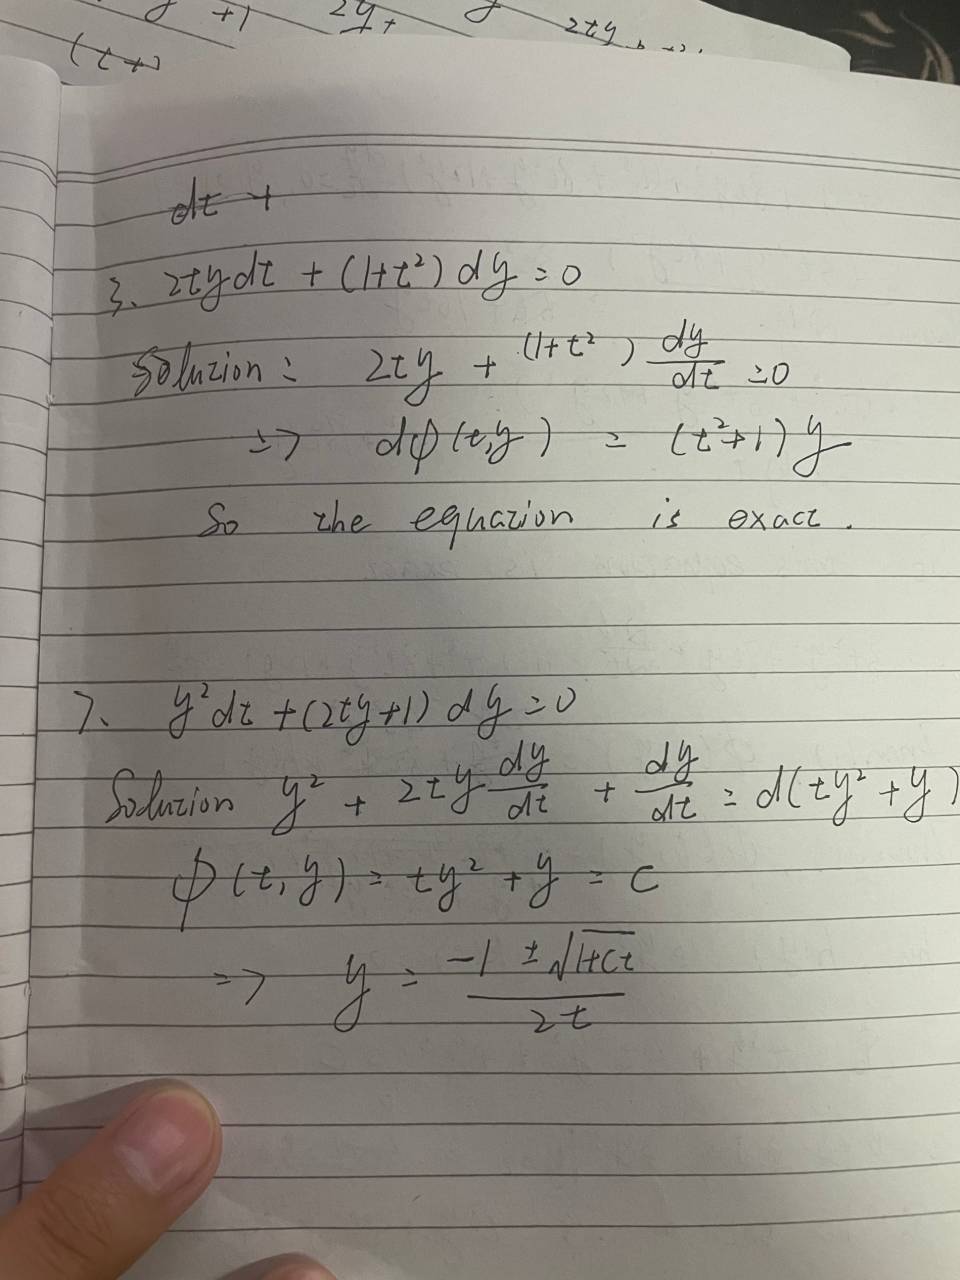 y +1 2y+ y 2ty
(t+
dt +
3. 2tydt + (1+t²) dy = 0
Solution: 2ty + (1+t²) dy/dt = 0
=> dφ(t,y) = (t²+1)y
So the equation is exact.
7. y²dt + (2ty+1) dy = 0
Solution y² + 2ty dy/dt + dy/dt = d(ty² + y)
φ(t,y) = ty² + y = C
=> y = -1 ± √1+Ct / 2t